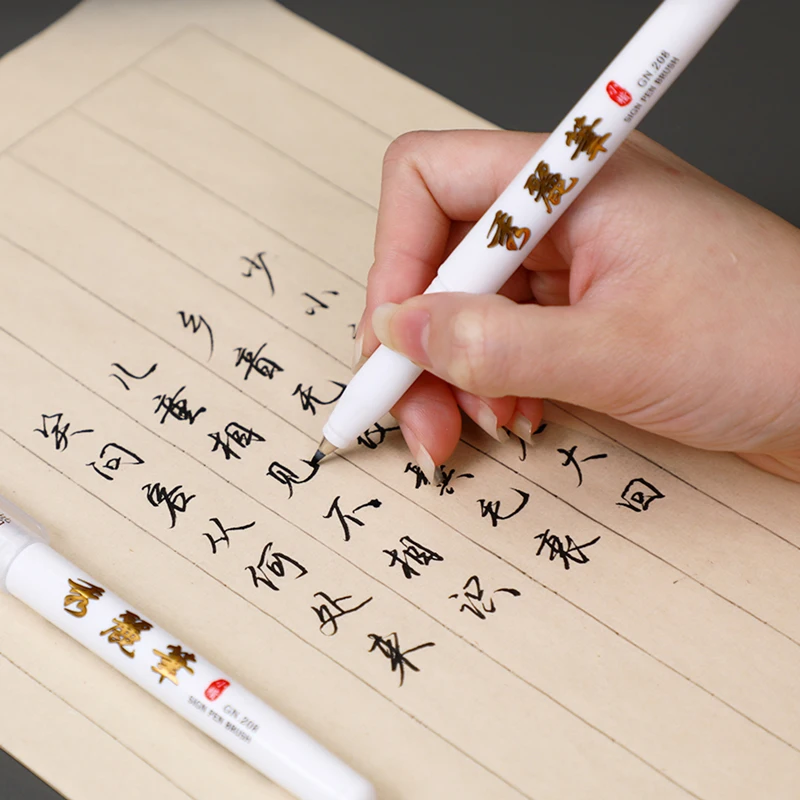 少小大回
乡音无改鬓毛衰
儿童相见不相识
笑问客从何处来
秀麗筆
小楷
GN 208
SIGN PEN BRUSH
秀麗筆
小楷
GN 208
SIGN PEN BRUSH